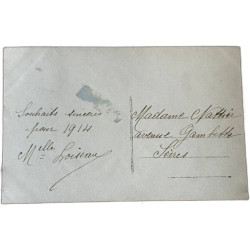 Souhaits sincères
pour 1914
Melle Loiseau
Madame Mathieu
avenue Gambetta
Sèvres